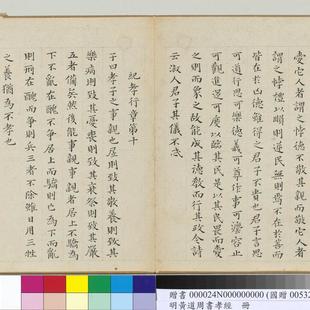 愛它人者謂之悖德不敬其親敬它人者
謂之悖禮以順則逆民無則焉不在於善而
皆在於凶德雖得之君子不貴也君子言思
可道行思可樂德義可尊作事可灋容止
可觀進退可度以臨其民是以其民畏而愛
之則而象之故能成其德教而行其政令詩
云淑人君子其儀不忒
紀孝行章第十
子曰孝子之事親也居則致其敬養則致其
樂病則致其憂喪則致其哀祭則致其嚴
五者備矣然後能事親事親者居上不驕為
下不亂在醜不爭居上而驕則亡為下而亂
則刑在醜而爭則兵三者不除雖日用三牲
之養猶為不孝也
贈書 000024N000000000 (國贈 00532
明黃道周書孝經 冊